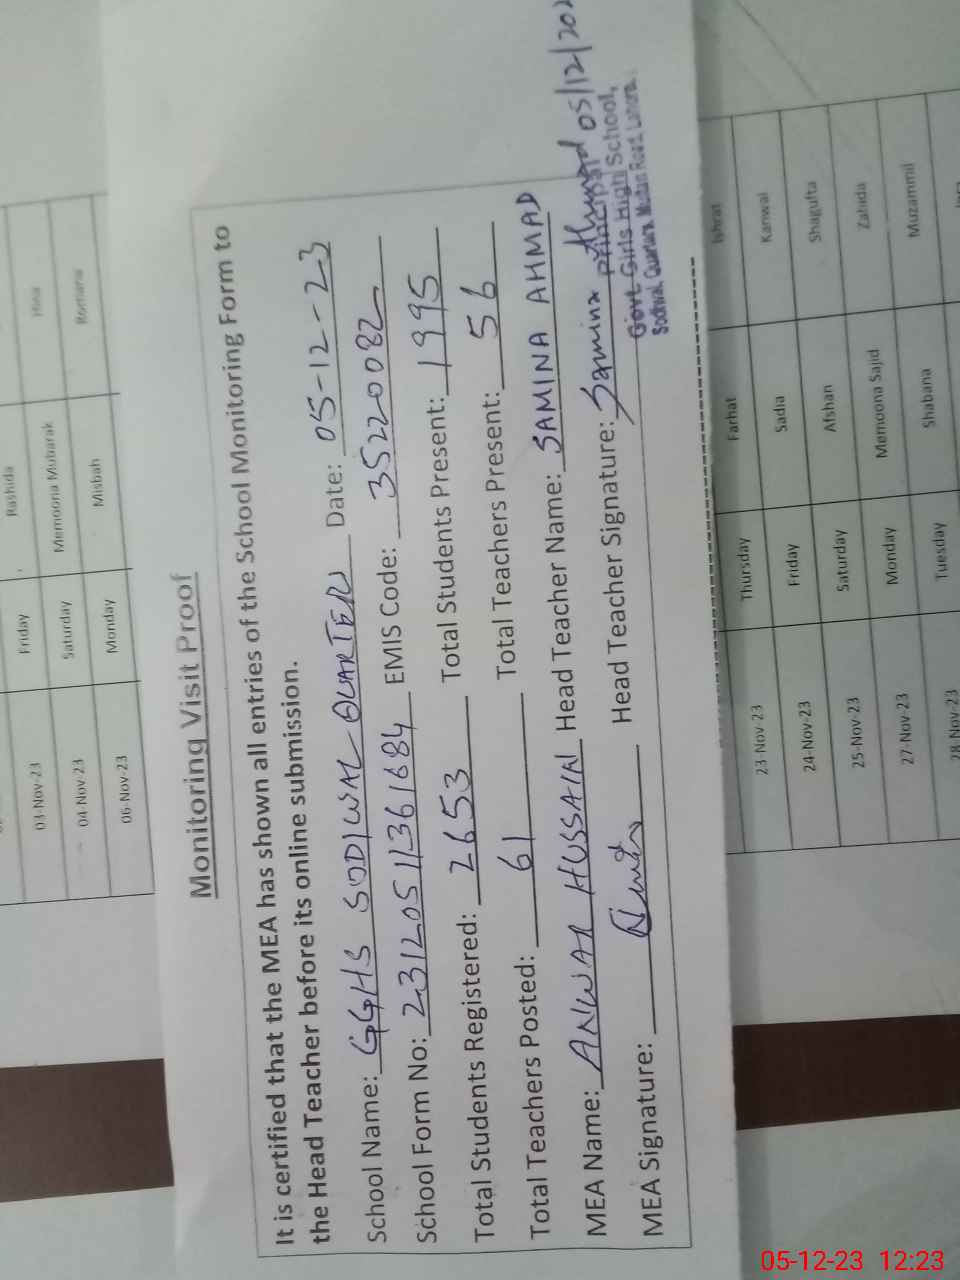 Monitoring Visit Proof
It is certified that the MEA has shown all entries of the School Monitoring Form to
the Head Teacher before its online submission.
School Name: GGHS SODIWAL QUARTER Date: 05-12-23
School Form No: 23120511361684 EMIS Code: 35220082
Total Students Registered: 2653 Total Students Present: 1995
Total Teachers Posted: 61 Total Teachers Present: 56
MEA Name: ANWAR HUSSAIN Head Teacher Name: SAMINA AHMAD
MEA Signature: Head Teacher Signature: Samina Ahmad 05/12/202
Principal
Govt. Girls High School,
Sodiwal Quarters Multan Road Lahore.
Friday Rashida
03-Nov-23 Saturday Memoona Mubarak Hina
04-Nov-23 Monday Misbah Romana
06-Nov-23
Thursday Farhat Ishrat
23-Nov-23 Friday Sadia Kanwal
24-Nov-23 Saturday Afshan Shagufta
25-Nov-23 Monday Memoona Sajid Zahida
27-Nov-23 Tuesday Shabana Muzammil
28-Nov-23
05-12-23 12:23